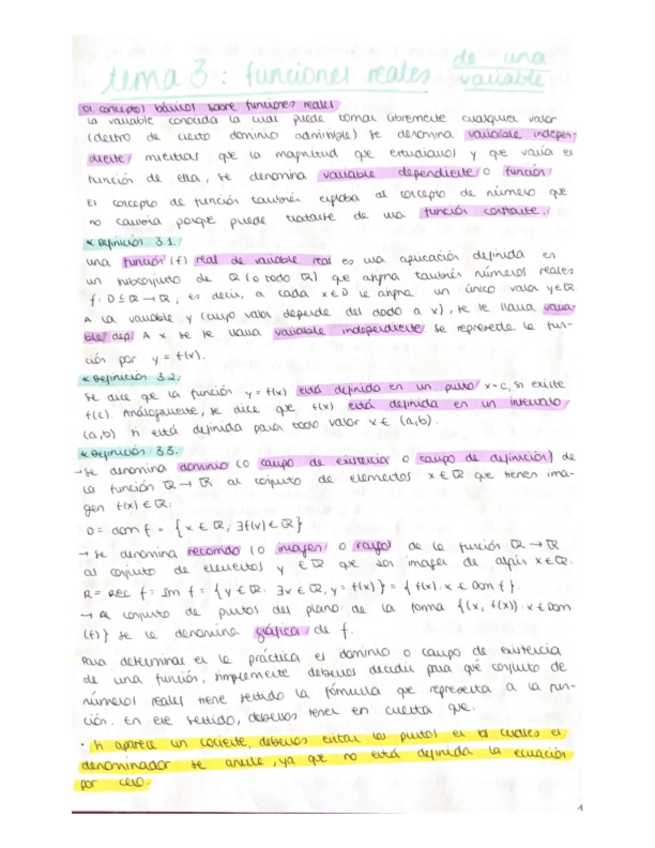 tema 3: funciones reales de una variable
01. conceptos básicos sobre funciones reales
La variable conocida la cual puede tomar libremente cualquier valor
(dentro de cierto dominio admisible) se denomina variable indepen-
diente, mientras que la magnitud que estudiamos y que varía en
función de ella, se denomina variable dependiente o función.
El concepto de función también engloba al concepto de número que
no cambia porque puede tratarse de una función constante.
* Definición 3.1.
una función (f) real de variable real es una aplicación definida en
un subconjunto de ℝ (o todo ℝ) que asigna también números reales
f: D ⊆ ℝ → ℝ, es decir, a cada x ∈ D le asigna un único valor y ∈ ℝ.
A la variable y (cuyo valor depende del dado a x), se le llama varia-
ble dep. A x se le llama variable independiente. Se representa la fun-
ción por y = f(x).
* Definición 3.2.
Se dice que la función y = f(x) está definida en un punto x=c, si existe
f(c). Análogamente, se dice que f(x) está definida en un intervalo
(a,b) si está definida para todo valor x ∈ (a,b).
* Definición 3.3.
→ Se denomina dominio (o campo de existencia o campo de definición) de
la función ℝ → ℝ al conjunto de elementos x ∈ ℝ que tienen ima-
gen f(x) ∈ ℝ:
D = dom f = {x ∈ ℝ, ∃f(x) ∈ ℝ}
→ Se denomina recorrido (o imagen o rango) de la función ℝ → ℝ
al conjunto de elementos y ∈ ℝ que son imagen de algún x ∈ ℝ.
R = Rec f = Im f = {y ∈ ℝ: ∃x ∈ ℝ, y = f(x)} = {f(x): x ∈ Dom f}.
→ Al conjunto de puntos del plano de la forma {(x, f(x)): x ∈ Dom
(f)} se le denomina gráfica de f.
Para determinar en la práctica el dominio o campo de existencia
de una función, simplemente debemos decidir para qué conjunto de
números reales tiene sentido la fórmula que representa a la fun-
ción. En ese sentido, debemos tener en cuenta que:
· Si aparece un cociente, debemos evitar los puntos en los cuales el
denominador se anule, ya que no está definida la ecuación
por cero.
1